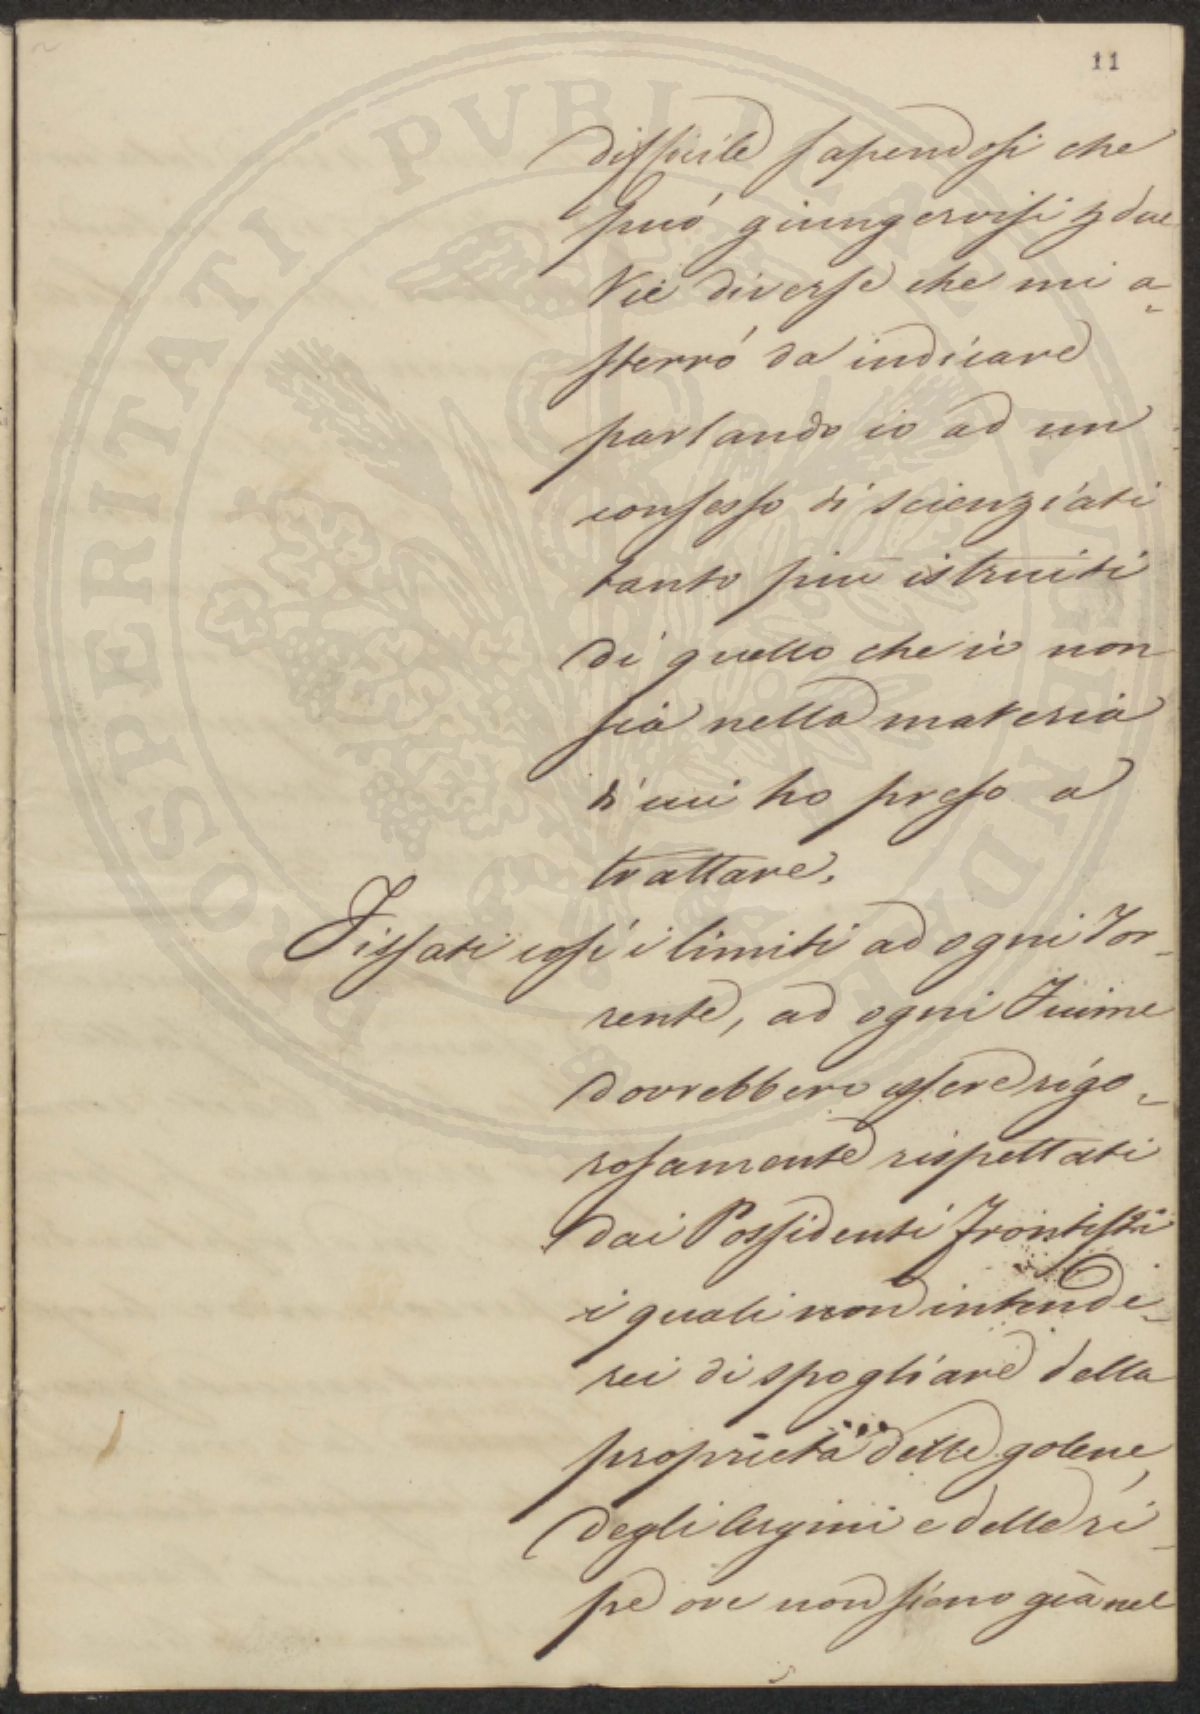 11
PROSPERITATI PUBLICAE AUGENDAE
difficile sapendosi che
può giungervisi per due
Vie diverse che mi a-
sterrò da indicare
parlando io ad un
consesso di scienziati
tanto più istruiti
di quello che io non
sia nella materia
di cui ho preso a
trattare.
Fissati così i limiti ad ogni Tor-
rente, ad ogni Fiume
dovrebbero essere rigo-
rosamente rispettati
dai Possidenti Frontisti
i quali non intende-
rei di spogliare della
proprietà delle golene,
degli Argini e delle ri-
pe ove non siano già nel